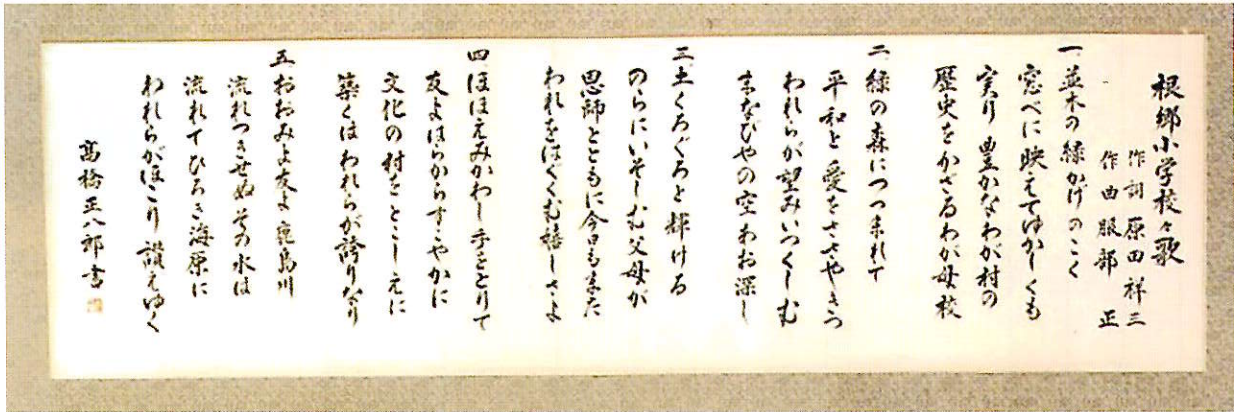 根郷小学校々歌
作詞 原田祥三
作曲 服部 正
一、並木の緑かげのこく
窓べに映えてゆかしくも
実り豊かなわが村の
歴史をかざるわが母校
二、緑の森につつまれて
平和と愛をささやきつ
われらが望みいつくしむ
まなびやの空わお深し
三、土くろぐろと輝ける
のらにいそしむ父母が
恩師とともに今日もまた
われをはぐくむ嬉しさよ
四、ほほえみかわし手をとりて
友よはらからすこやかに
文化の村をとこしえに
築くはわれらが誇りなり
五、おおみよ友よ鹿島川
流れつきせぬその水は
流れてひろき海原に
われらがほこり讃えゆく
高橋正八郎書